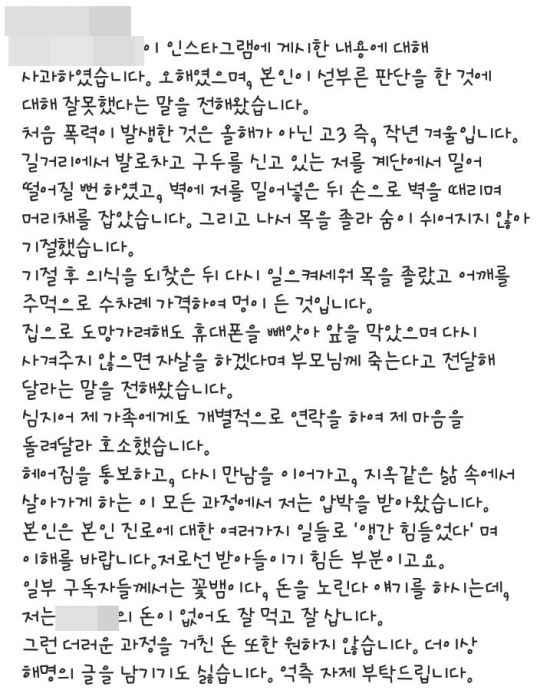 이 인스타그램에 게시한 내용에 대해
사과하였습니다. 오해였으며, 본인이 섣부른 판단을 한 것에
대해 잘못했다는 말을 전해왔습니다.
처음 폭력이 발생한 것은 올해가 아닌 고3 즉, 작년 겨울입니다.
길거리에서 발로차고 구두를 신고 있는 저를 계단에서 밀어
떨어질 뻔 하였고, 벽에 저를 밀어넣은 뒤 손으로 벽을 때리며
머리채를 잡았습니다. 그리고 나서 목을 졸라 숨이 쉬어지지 않아
기절했습니다.
기절 후 의식을 되찾은 뒤 다시 일으켜세워 목을 졸랐고 어깨를
주먹으로 수차례 가격하여 멍이 든 것입니다.
집으로 도망가려해도 휴대폰을 빼앗아 앞을 막았으며 다시
사겨주지 않으면 자살을 하겠다며 부모님께 죽는다고 전달해
달라는 말을 전해왔습니다.
심지어 제 가족에게도 개별적으로 연락을 하여 제 마음을
돌려달라 호소했습니다.
헤어짐을 통보하고, 다시 만남을 이어가고, 지옥같은 삶 속에서
살아가게 하는 이 모든 과정에서 저는 압박을 받아왔습니다.
본인은 본인 진로에 대한 여러가지 일들로 '앵간 힘들었다' 며
이해를 바랍니다.저로선 받아들이기 힘든 부분이고요.
일부 구독자들께서는 꽃뱀이다, 돈을 노린다 얘기를 하시는데,
저는 의 돈이 없어도 잘 먹고 잘 삽니다.
그런 더러운 과정을 거친 돈 또한 원하지 않습니다. 더이상
해명의 글을 남기기도 싫습니다. 억측 자제 부탁드립니다.